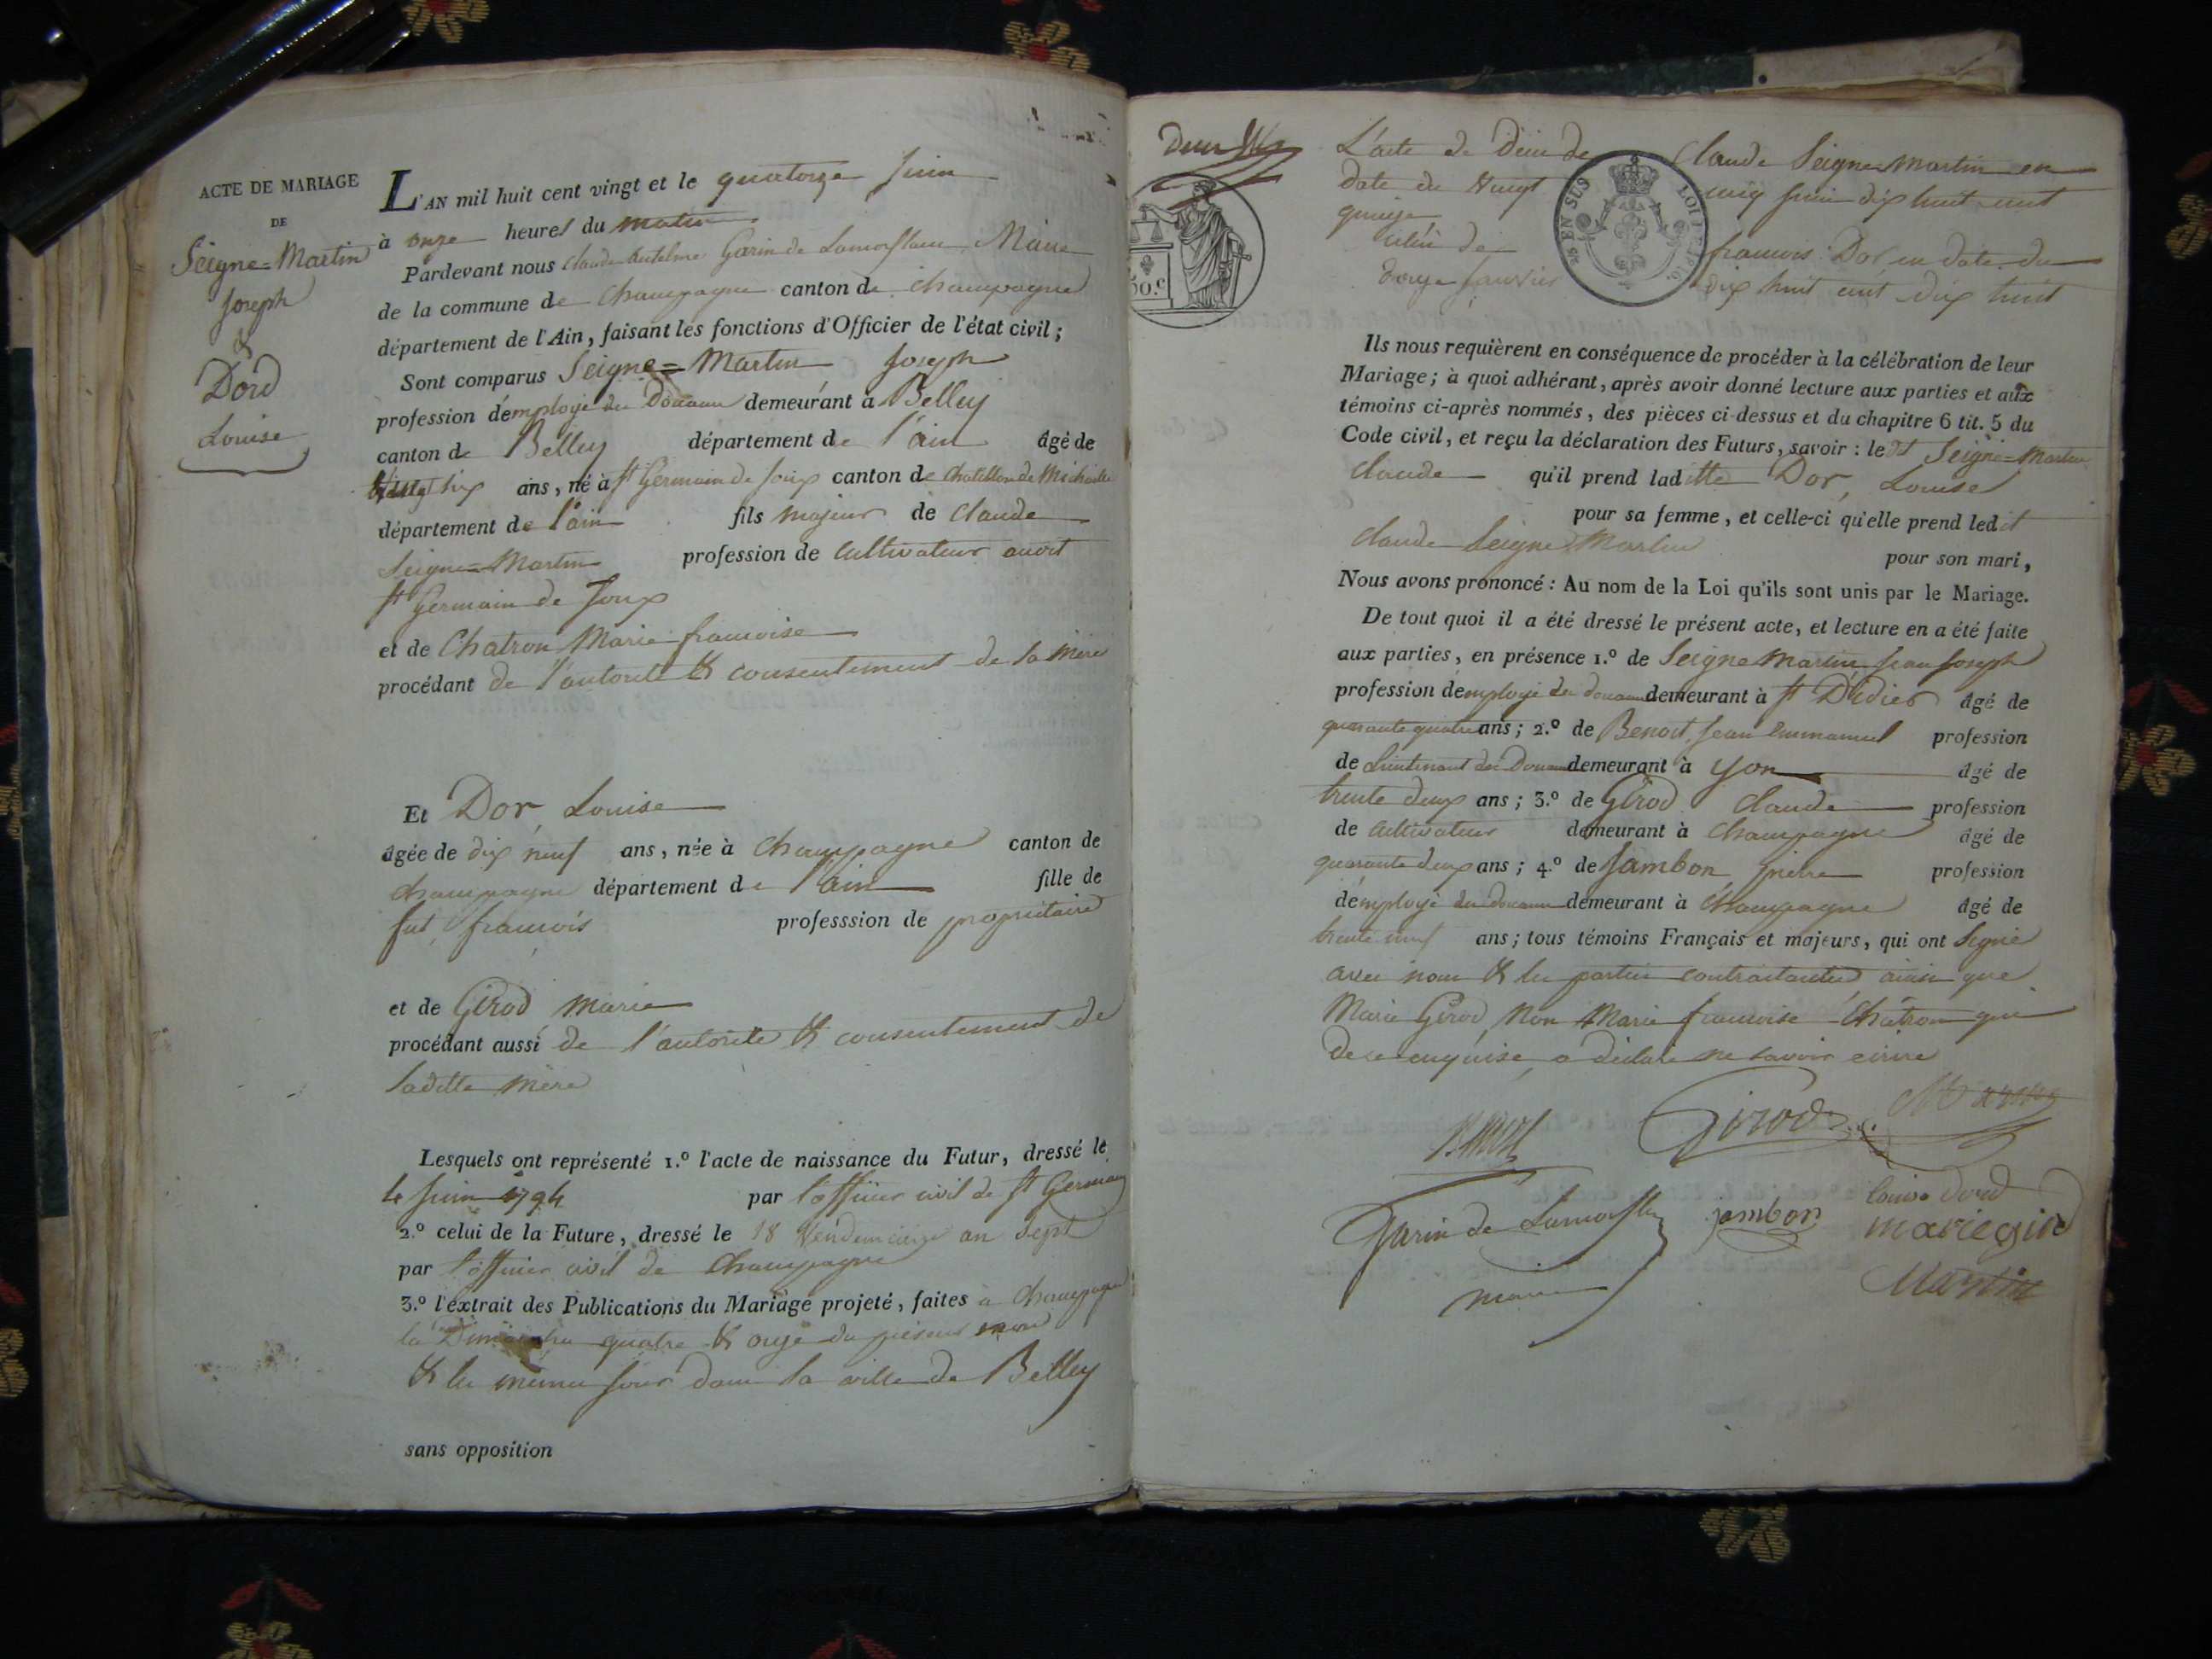 ACTE DE MARIAGE
DE
Seigne=Martin
Joseph
&
Dord
Louise
L'AN mil huit cent vingt et le quatorze Juin
à onze heures du matin
Pardevant nous Claude Antelme Garin de Lamorflan Maire
de la commune de Champagne canton de Champagne
département de l'Ain, faisant les fonctions d'Officier de l'état civil;
Sont comparus Seigne=Martin Joseph
profession d'employé des Douanes demeurant à Belley
canton de Belley département de l'ain âgé de
six ans, né à St Germain de Joux canton de Chatillon de Michaille
département de l'ain fils majeur de Claude
Seigne=Martin profession de Cultivateur audit
St Germain de Joux
et de Chatron Marie francoise
procédant de l'autorité & consentement de sa mère
Et Dor, Louise
âgée de dix neuf ans, née à Champagne canton de
champagne département de l'ain fille de
fut françois professsion de propriétaire
et de Girod Marie
procédant aussi de l'autorité & consentement de
laditte mère
Lesquels ont représenté 1.º l'acte de naissance du Futur, dressé le
4 Juin 1794 par l'officier civil de St Germain
2.º celui de la Future, dressé le 18 Vendemiaire an Sept
par l'officier civil de Champagne
3.º l'extrait des Publications du Mariage projeté, faites à Champagne
les Dimanches quatre & onze du présent mois
& les mêmes jours dans la ville de Belley
sans opposition
L'acte de Décès de Claude Seigne=Martin en
date du Vingt cinq Juin dix huit cent
quinze
celui de francois Dor, en date du
douze Janvier dix huit cent dix huit
EN SUS
LOI DE 1816
50.c
Ils nous requièrent en conséquence de procéder à la célébration de leur
Mariage; à quoi adhérant, après avoir donné lecture aux parties et aux
témoins ci-après nommés, des pièces ci-dessus et du chapitre 6 tit. 5 du
Code civil, et reçu la déclaration des Futurs, savoir: ledit Seigne=Martin
Claude qu'il prend laditte Dor, Louise
pour sa femme, et celle-ci qu'elle prend ledit
Claude Seigne Martin pour son mari,
Nous avons prononcé: Au nom de la Loi qu'ils sont unis par le Mariage.
De tout quoi il a été dressé le présent acte, et lecture en a été faite
aux parties, en présence 1.º de Seigne Martin Jean Joseph
profession d'employé des douanes demeurant à St Didier âgé de
quarante quatre ans; 2.º de Benoit, Jean Emmanuel profession
de Lieutenant des Douanes demeurant à Yon âgé de
trente deux ans; 3.º de Girod Claude profession
de cultivateur demeurant à Champagne âgé de
quarante deux ans; 4.º de Jambon pierre profession
d'employé des douanes demeurant à Champagne âgé de
trente neuf ans; tous témoins Français et majeurs, qui ont Signé
avec nous & les parties contractantes ainsi que
Marie Girod, Non Marie francoise Chatron qui
de ce enquise, a déclaré ne savoir écrire
Benoit
Girod
Martin
Garin de Lamorflan
maire
jambon
louise dord
marie girod
Martin